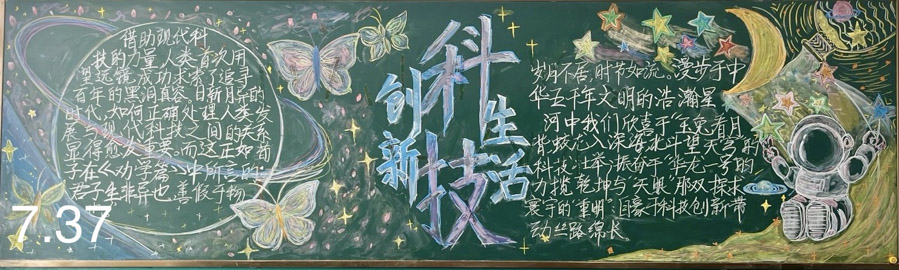 借助现代科
技的力量人类首次用
望远镜成功求索了追寻
百年的黑洞真容。日新月异的
时代,如何正确处理人类发
展与现代科技之间的关系
显得愈发重要。而这正如荀
子在《劝学篇》中所言的:
君子生非异也,善假于物
科技
创新
生活
岁月不居,时节如流。漫步于中
华五千年文明的浩瀚星
河中我们欣喜于"玉兔"看月
"蛟龙"入深海北斗望天宫的
科技壮举;振奋于"华龙一号"的
力揽乾坤与"天眼"那双探求
寰宇的"重明"。目豪于科技创新带
动丝路绵长
7.37